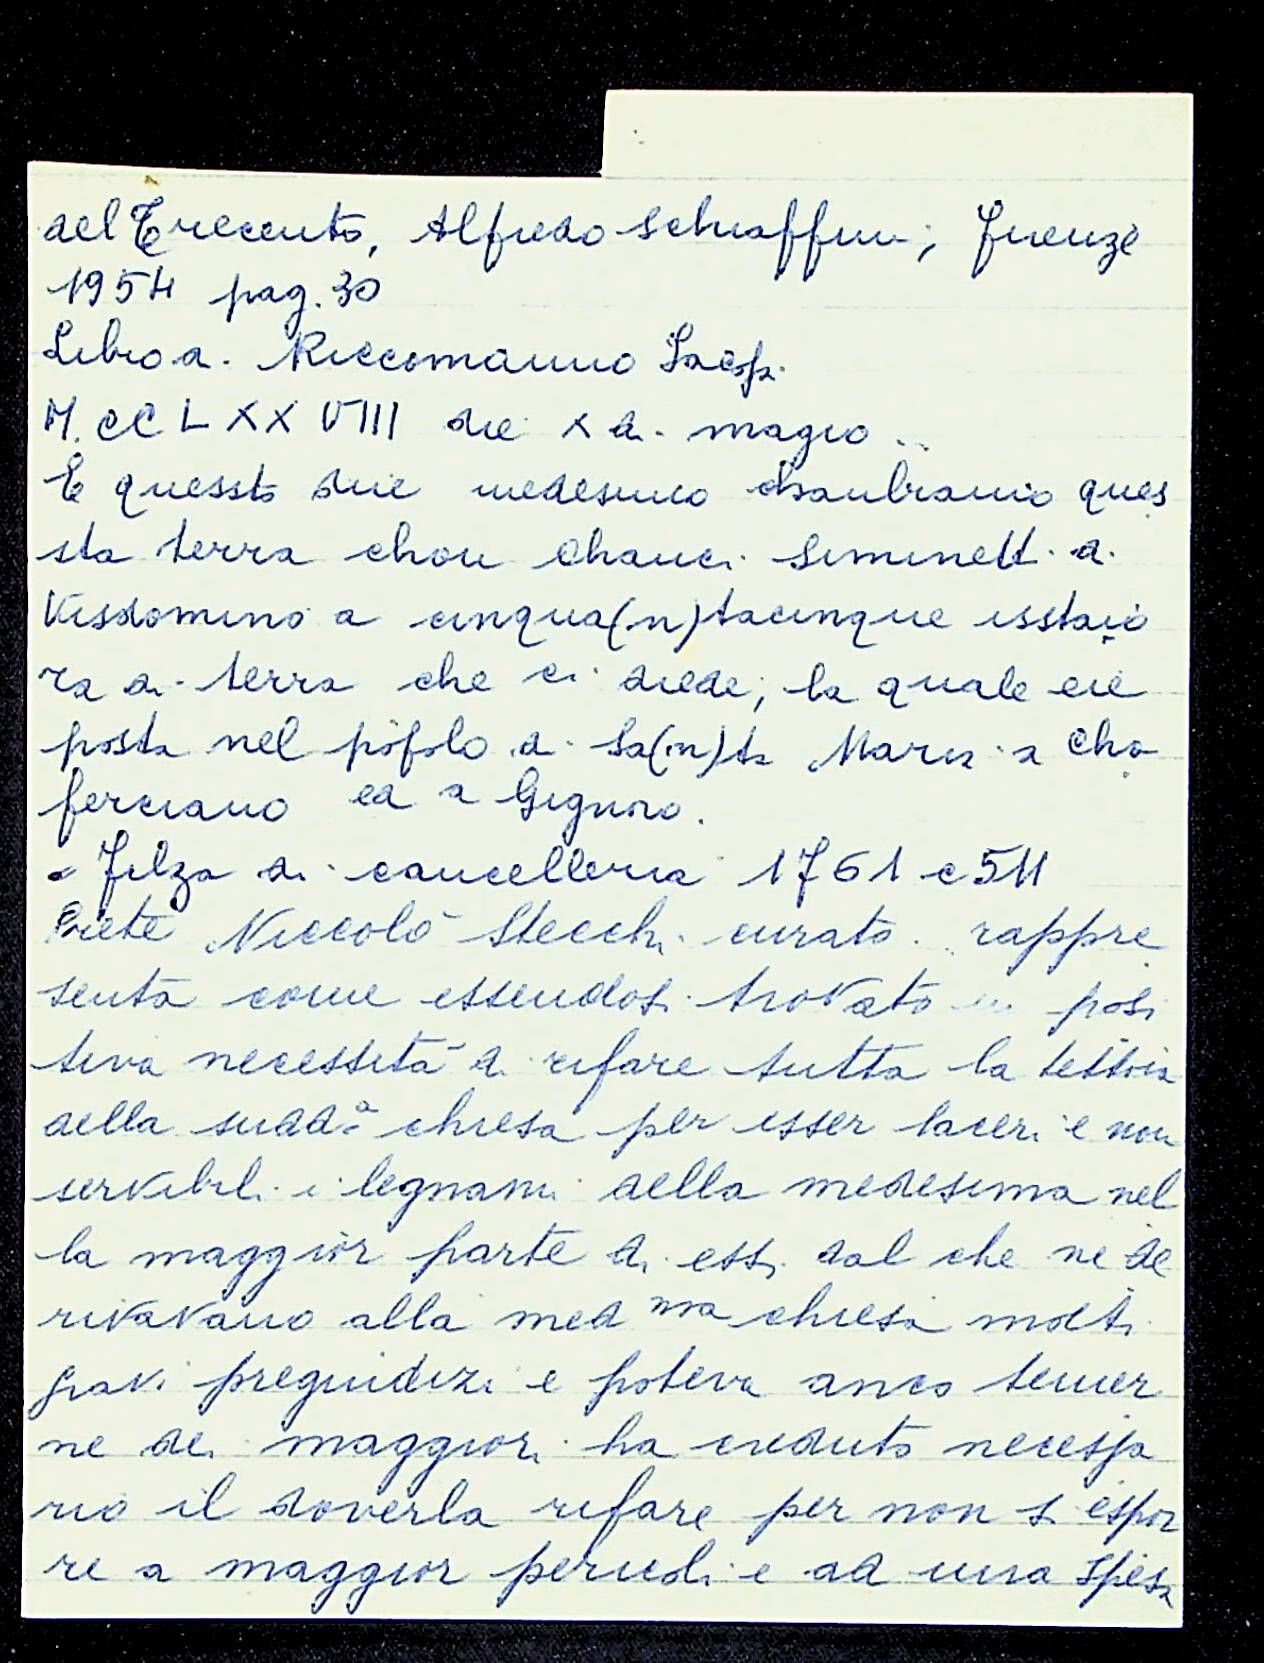 del Trecento, Alfredo Schiaffini, Firenze
1954 pag. 30
Libro di Riccomanno Jacop.
M.CCLXXVIII die X di magio
E quessto die medesimo chanbiamo ques
sta terra chon Chanci Siminetti di
Visdomino a cinqua(n)tacinque isstaio
ra di terra che ci diede; la quale eie
posta nel popolo di Sa(n)ta Maria a Cho
ferciano ed a Gignoro.
Filza di cancelleria 1761 c 511
Prete Niccolò Stecchi curato rappre
senta come essendosi trovato in posi
tiva necessità di rifare tutta la tettoia
della sudd.ª chiesa per esser laceri e non
servibili i legnami della medesima nel
la maggior parte di essi dal che ne de
rivavano alla med ma chiesa molti
gravi pregiudizi e poteva anco temer
ne dei maggiori ha creduto necessa
rio il doverla rifare per non si espor
re a maggior pericoli e ad una spesa